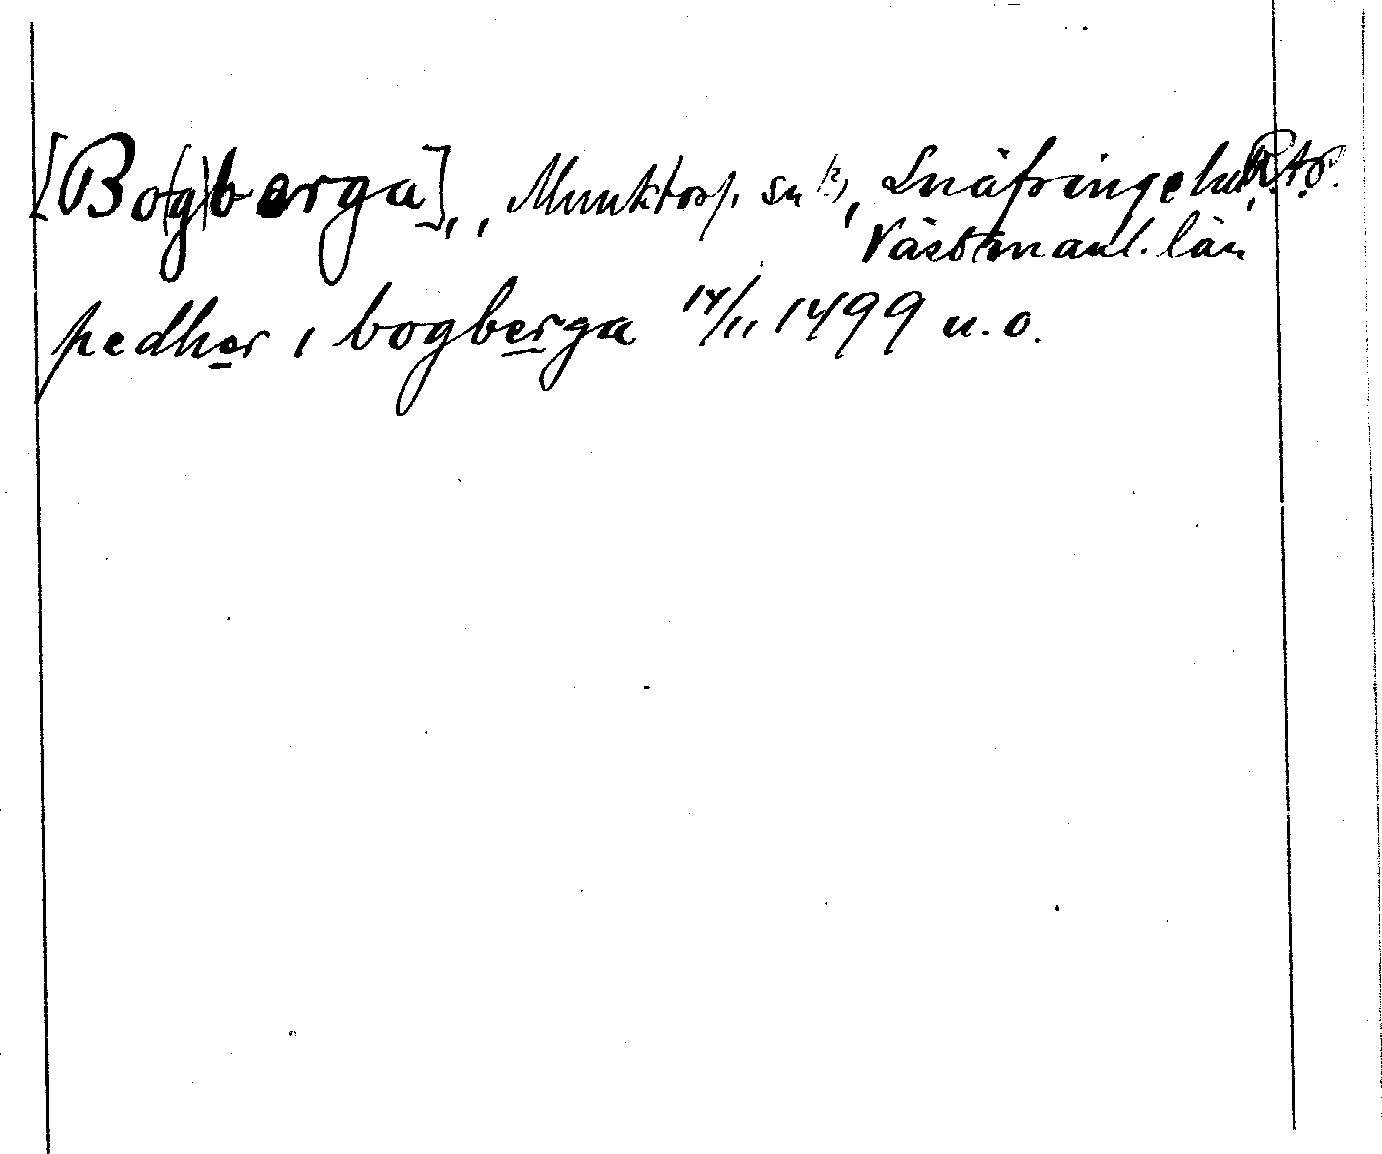 [Bo(g)berga],, Munktorp sn (?), Snäfringe hd, RAp.
Västmanl. län
pedher i bogberga 14/11 1499 u.o.